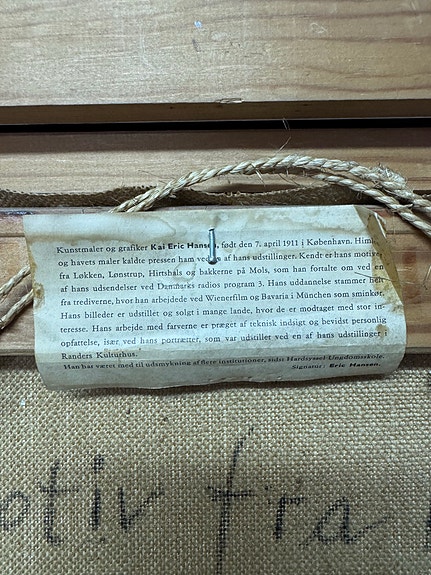 Kunstmaler og grafiker Kai Eric Hansen, født den 7. april 1911 i København.
og havets maler kaldte pressen ham ved en af hans udstillinger. Kendt er hans motiver
fra Løkken, Lønstrup, Hirtshals og bakkerne på Mols, som han fortalte om ved en
af hans udsendelser ved Danmarks radios program 3. Hans uddannelse stammer helt
fra trediverne, hvor han arbejdede ved Wienerfilm og Bavaria i München som sminkør.
Hans billeder er udstillet og solgt i mange lande, hvor de er modtaget med stor in-
teresse. Hans arbejde med farverne er præget af teknisk indsigt og bevidst personlig
opfattelse, især ved hans portrætter, som var udstillet ved en af hans udstillinger i
Randers Kulturhus.
Han har været med til udsmykning af flere institutioner, sidst Hardsyssel Ungdomsskole.
Signatur: Eric Hansen.
otiv fra